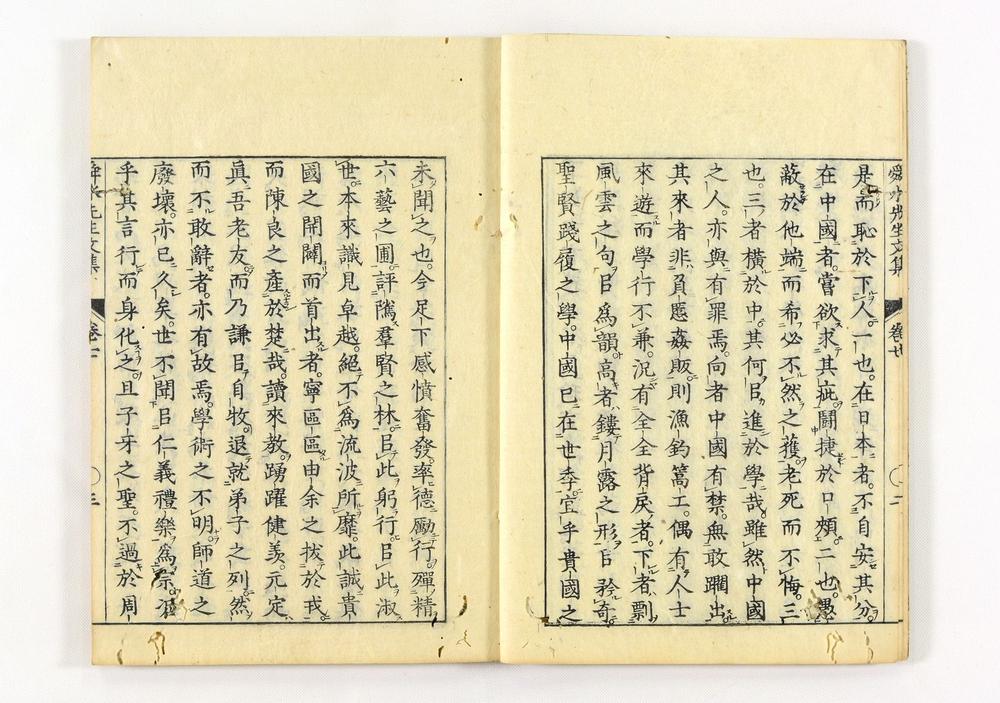 舜水先生文集　卷　二
是而恥於下人。一也。在日本者。不自安其分。
在中國者。嘗欲求其疵。鬪捷於口頰。二也。愚
蔽於他端而希必不然之獲。老死而不悔。三
也。三者橫於中。其何㠯進於學哉。雖然中國
之人。亦與有罪焉。向者中國有禁。無敢躙出。
其來者非負慝姦販。則漁釣篙工。偶有人士
來遊而學行不兼。況有全全背戾者。下者剽
風雲之句㠯爲韻。高者鏤月露之形㠯矜奇。
聖賢踐履之學。中國已在世季。宜乎貴國之
未聞之也。今足下感憤奮發。率德勵行。殫精
六藝之圃。評隲羣賢之林。㠯此躬行。㠯此淑
世。本來識見卓越。絕不爲流波所靡。此誠貴
國之開闢而首出者。寧區區由余之拔於戎
而陳良之產於楚哉。讀來教。踴躍健羨。元定
眞吾老友。而乃謙㠯自牧。退就弟子之列。然
而不敢辭者。亦有故焉。學術之不明。師道之
廢壞。亦已久矣。世不聞㠯仁義禮樂爲宗。
乎其言行而身化之。且子牙之聖。不過於周
舜水先生文集